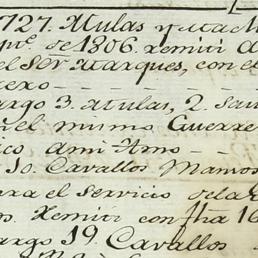 727. Mulas y 
pre. de 1806. Remiti a
el Sor. Marques, con el
rexo
argo 3. Mulas, 2.
el mismo Guerre
ico a mi Amo
10. Cavallos Mansos
ara el Servicio de la
Remiti con fha 16
argo 19 Cavallos